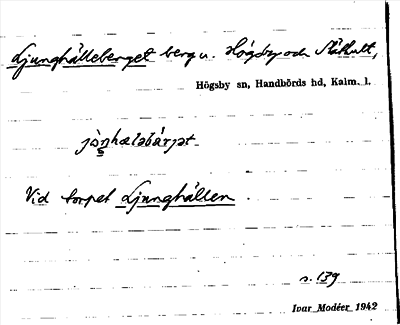 Ljunghälleberget berg u. Högsby och
Högsby sn, Handbörds hd, Kalm. l.
Vid torpet Ljunghällen
s. 139
Ivar Modéer 1942